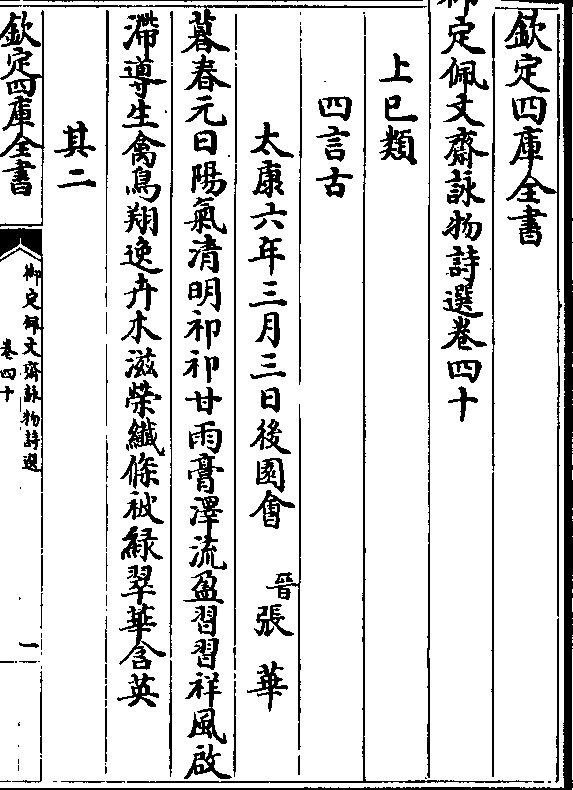 欽定四庫全書
御定佩文齋詠物詩選卷四十
上巳類
四言古
太康六年三月三日後園會 晉張華
暮春元日陽氣清明祁祁甘雨膏澤流盈習習祥風啟
滯導生禽鳥翔逸卉木滋榮纖條被緑翠華含英
其二
欽定四庫全書
御定佩文齋詠物詩選
卷四十
一